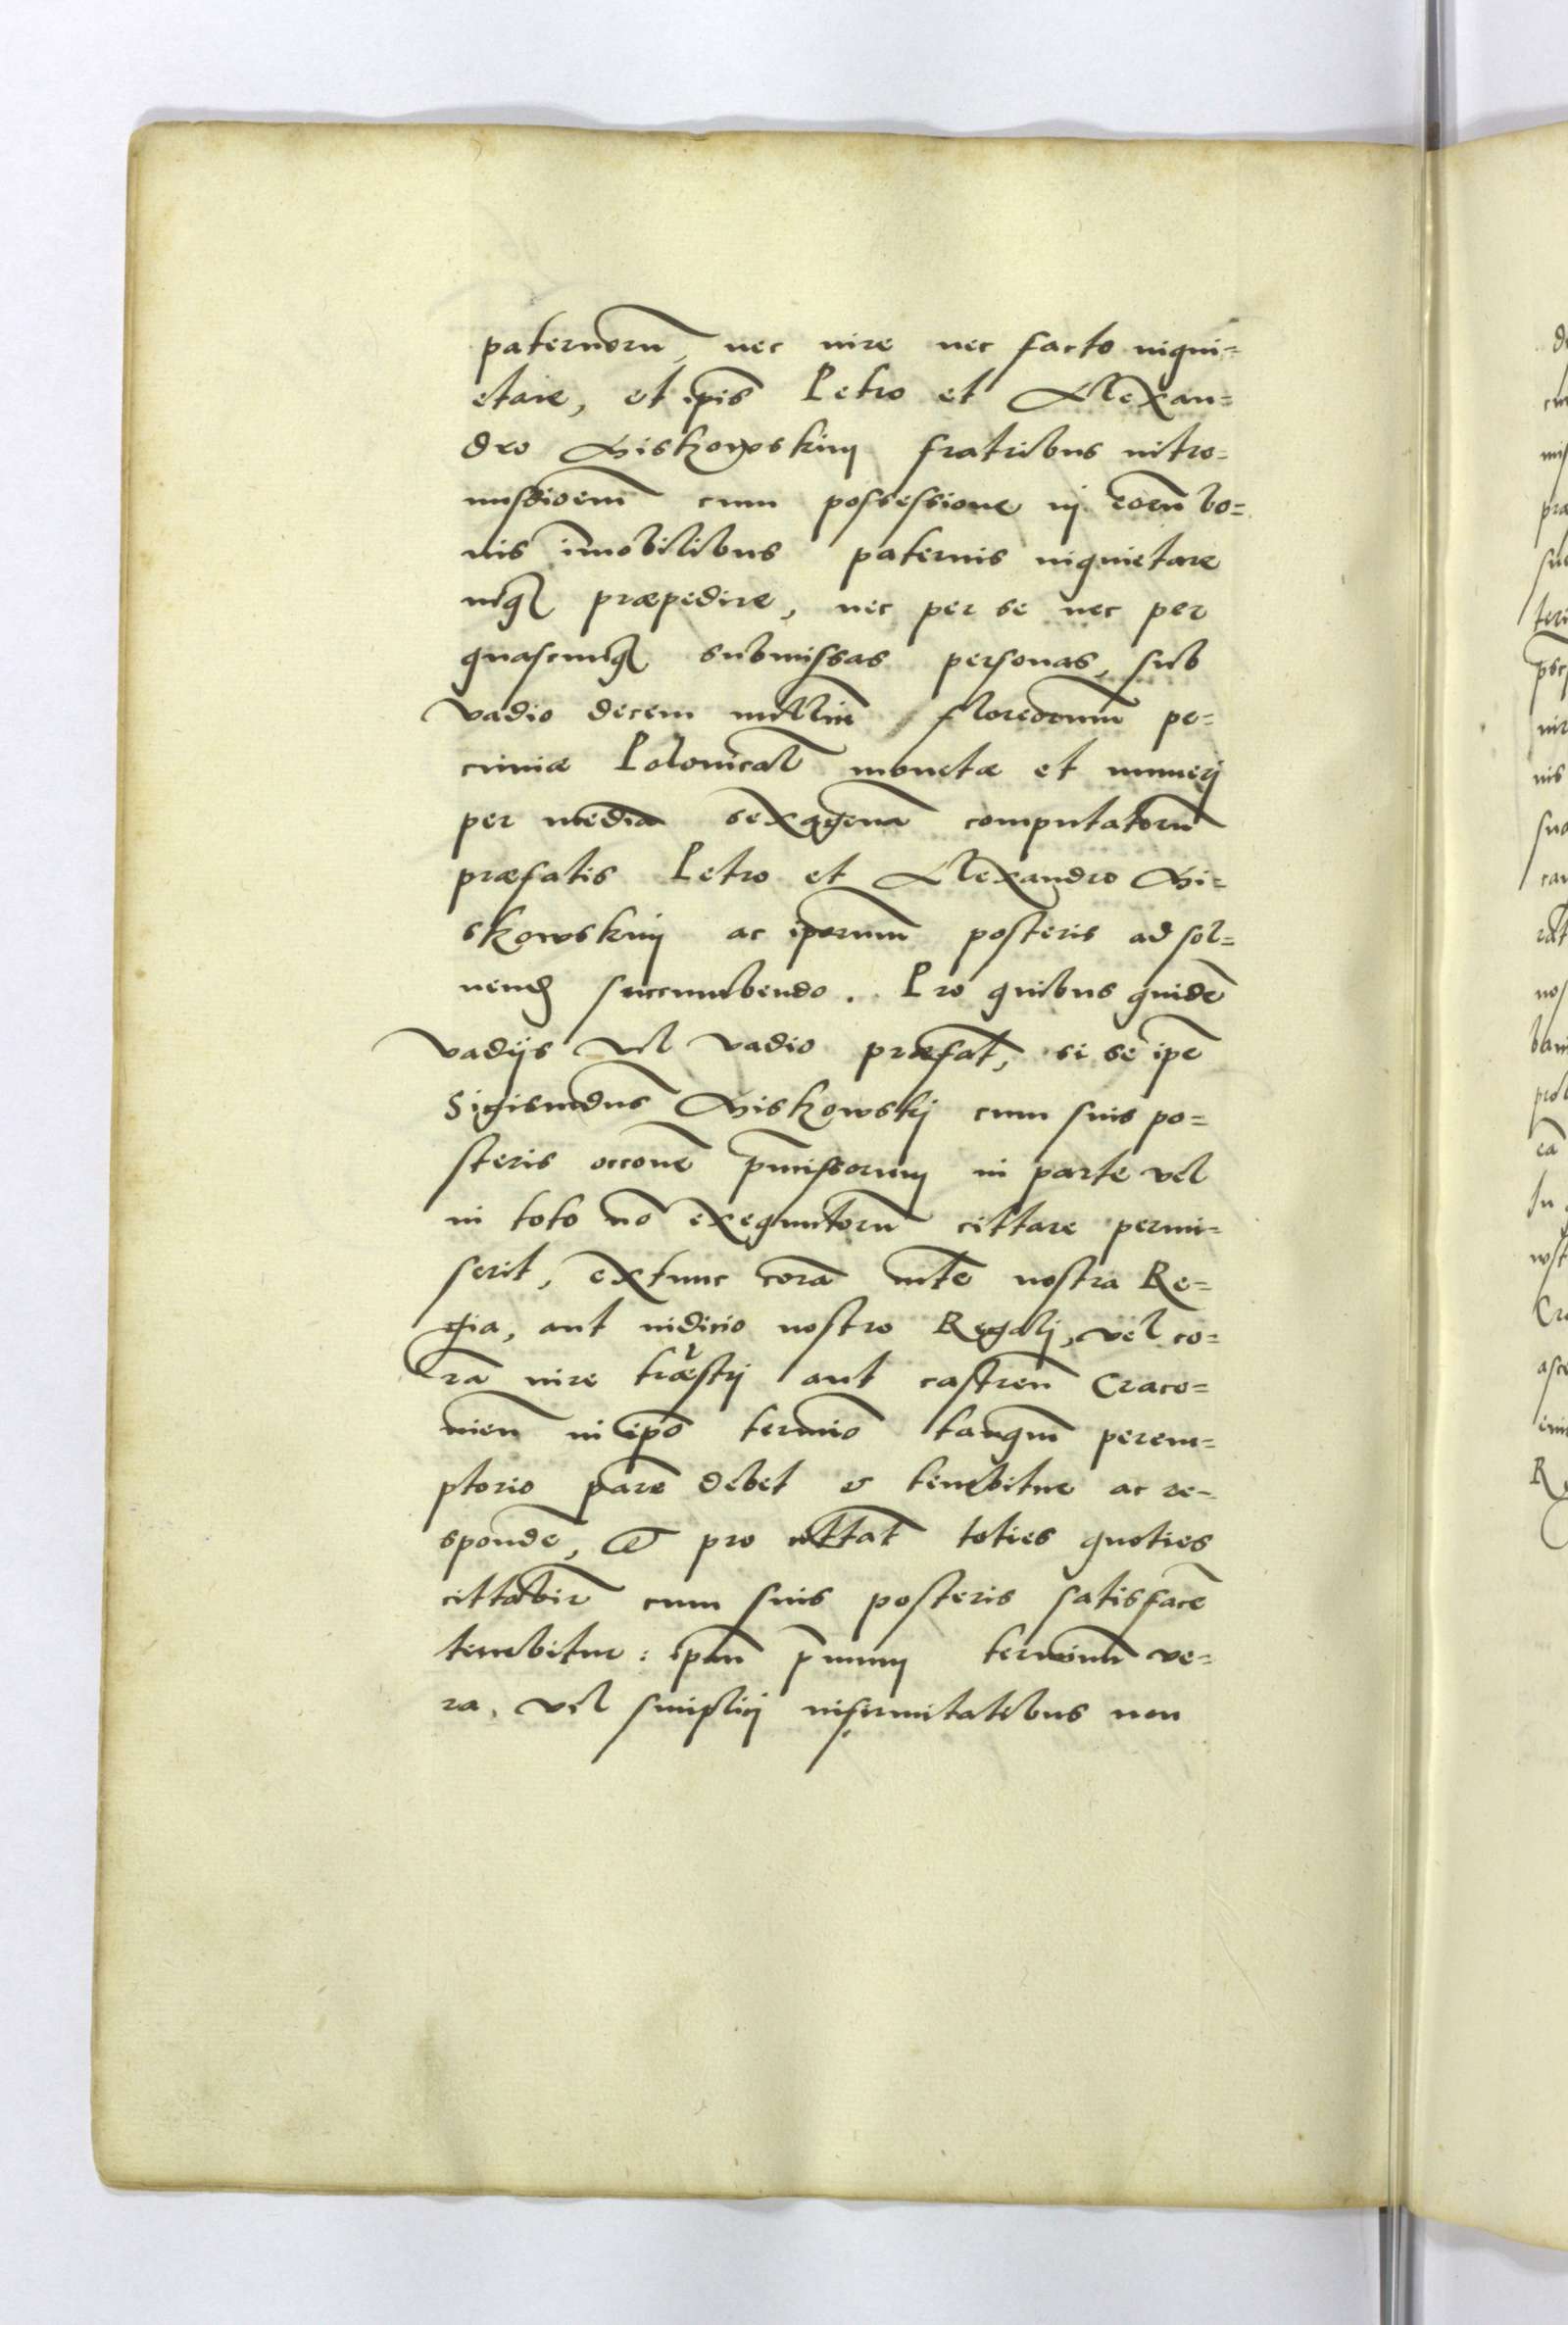 paternorũ, nec iure nec facto inqui=
etare, et ip̃is Petro et Alexan=
dro Giskowskim fratribus intro=
missioem̃ cum possessione in eorũ bo=
nis im̃obilibus paternis inquietare
neq3 præpedire, nec per se nec per
quascunq3 submissas personas, sub
vadio decem milliũ florenorum̃ pe=
cuniæ Polonical̃ monetæ et numeri
per mediã sexagenã computatorũ
præfatis Petro et Alexandro Gi=
skowskim ac ip̃orum posteris ad sol=
uend̃ succumbendo. Pro quibus quidẽ
vadijs vel vadio præfat̃, si se ip̃e
Sigismũdus Giskowskj cum suis po=
steris occõne p̃missorum in parte vel
in toto nõ exequutorũ cittare permi=
serit, extunc corã mt̃e nostra Re=
gia, aut iudicio nostro Regalj, vel co=
rã iure træstrj aut castreñ Craco=
uieñ in ip̃o termiõ tanqm̃ perem=
ptorio parẽ debet & tenebitur ac re=
spondẽ, et pro cittat̃ toties quoties
cittabit̃ cum suis posteris satisfacẽ
tenebitur: ip̃um p̃mum terminũ ve=
ra, vel simplicj infirmitatibus non